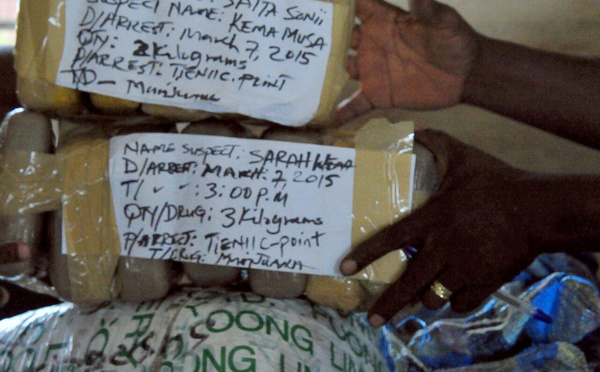 SUSPECT NAME: KEMA MUSA
D/ARREST: March 7, 2015
QN: 2 Kilograms
P/ARREST: TIENIIC-POINT
T/D - Marijuana
NAME SUSPECT: SARAH
D/ARREST: MARCH 7, 2015
T/ " " : 3:00 P.M
QN/DRUG: 3 Kilograms
P/ARREST: TIENIIC-point
T/DRUG: MARIJUANA
OONG
OONG LIM